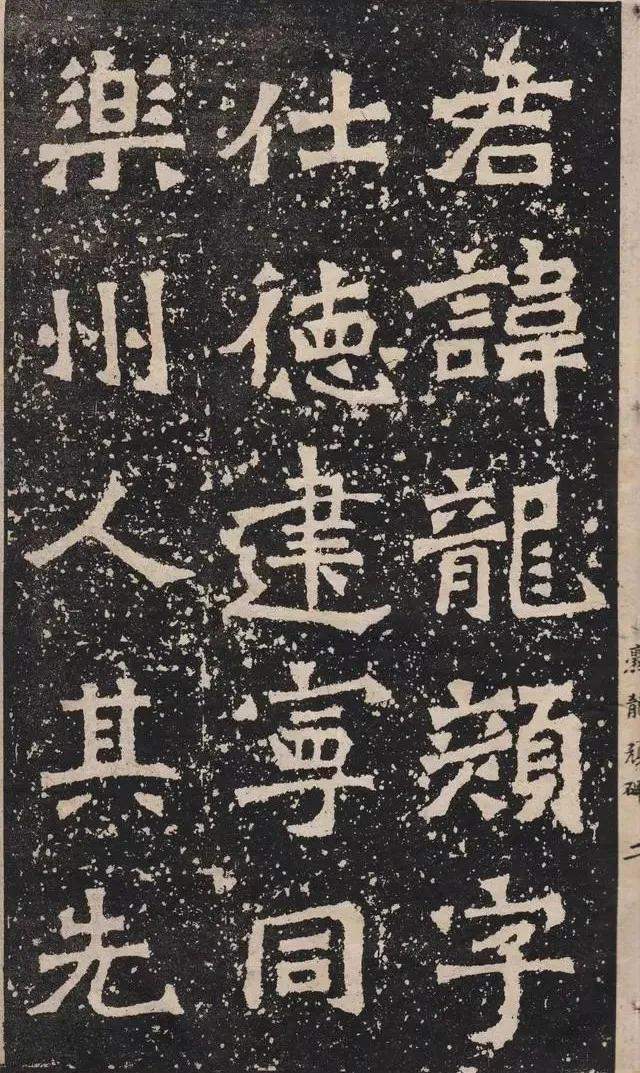 君諱龍顏字
仕德建寧同
樂州人其先
爨龍顏碑 二